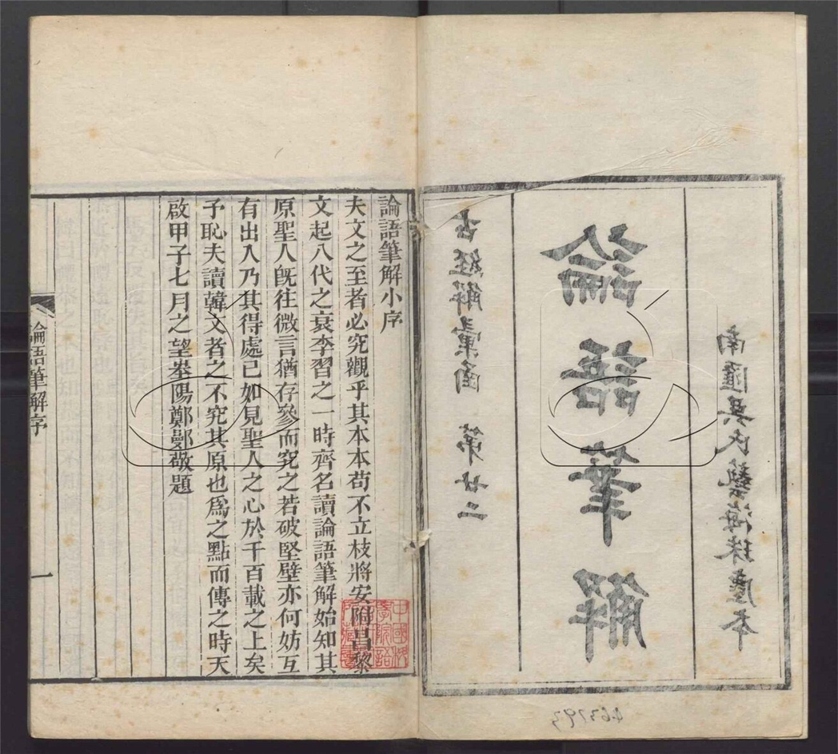 南匯吳氏藝海珠塵本
論語筆解
古經解彙函 第廿二
463793
論語筆解小序
夫文之至者必究觀乎其本本苟不立枝將安附昌黎
文起八代之衰李習之一時齊名讀論語筆解始知其
原聖人旣往微言猶存參而究之若破堅壁亦何妨互
有出入乃其得處已如見聖人之心於千百載之上矣
予恥夫讀韓文者之不究其原也爲之點而傳之時天
啟甲子七月之望峚陽鄭鄤敬題
論語筆解序
一